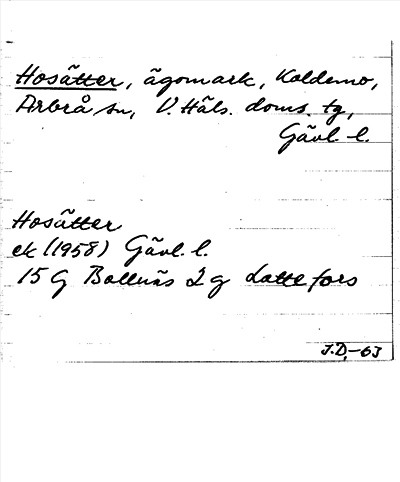 Hosätter, ägomark, Koldemo,
Arbrå sn, V. Häls. doms. tg,
Gävl. l.
Hosätter
ek (1958) Gävl. l.
15 G Bollnäs 2 g Lottefors
J.D.-63